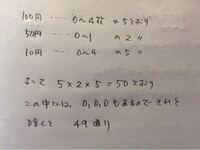 100円 ---- 0〜4枚 の5とおり
50円 ---- 0〜1 の2 〃
10円 ---- 0〜4 の5 〃
よって 5×2×5=50とおり
この中には、0,0,0もあるのでそれを
除くと 49通り